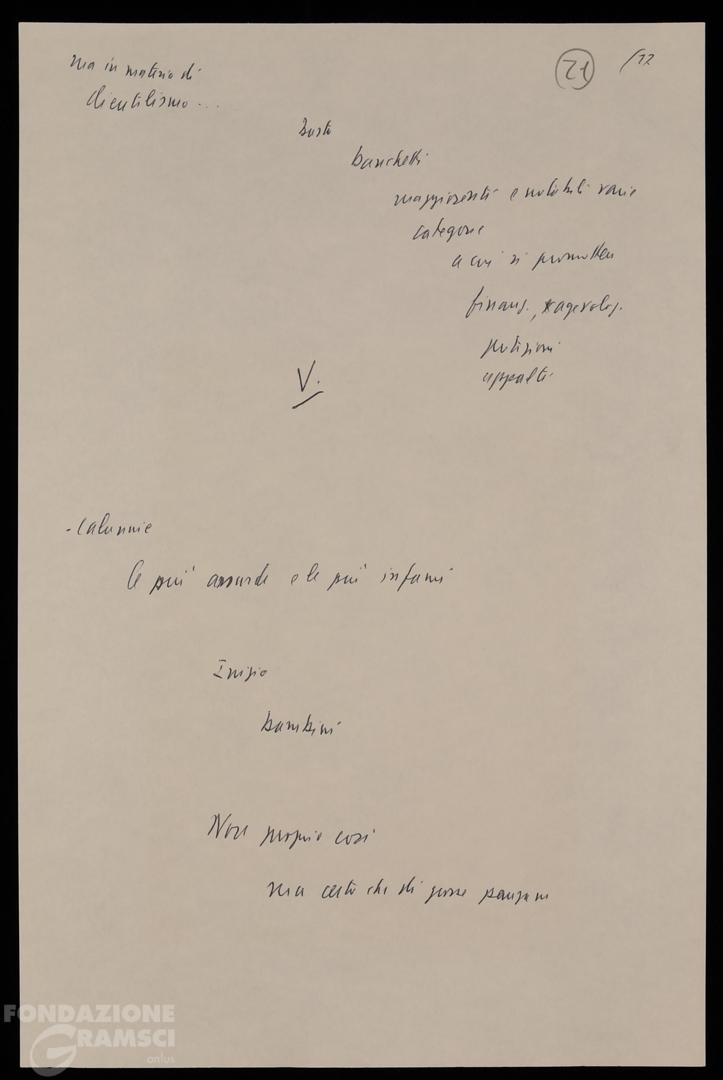 ma in materia di
clientelismo...
21
/12
Basta
banchetti
maggiorenti e notabili varie
categorie
a cui si promettono
finanz., agevolaz.
petizioni
appalti
V.
- Calunnie
le più assurde e le più infami
Inizio
bambini
Non proprio così
ma certo che di grosse
FONDAZIONE
GRAMSCI
onlus